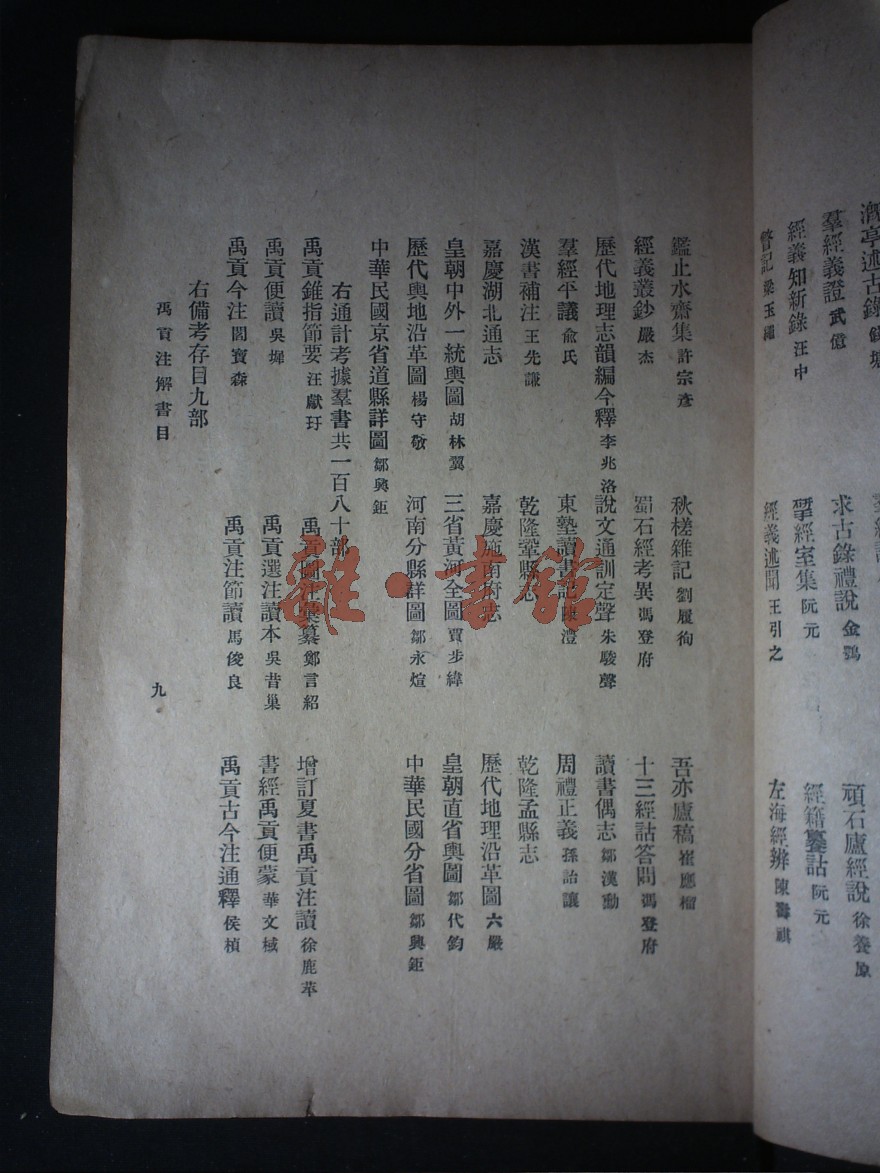 羣經義證 武億 求古錄禮說 金鶚 頑石廬經說 徐養原
經義知新錄 汪中 揅經室集 阮元 經籍籑詁 阮元
瞥記 梁玉繩 經義述聞 王引之 左海經辨 陳壽祺
鑑止水齋集 許宗彥 秋槎雜記 劉履徇 吾亦廬稿 崔應榴
經義叢鈔 嚴杰 蜀石經考異 馮登府 十三經詁答問 馮登府
歷代地理志韻編今釋 李兆洛 說文通訓定聲 朱駿聲 讀書偶志 鄒漢勳
羣經平議 俞氏 東塾讀書記 陳澧 周禮正義 孫詒讓
漢書補注 王先謙 乾隆鞏縣志 乾隆孟縣志
嘉慶湖北通志 嘉慶施南府志 歷代地理沿革圖 六嚴
皇朝中外一統輿圖 胡林翼 三省黃河全圖 賈步緯 皇朝直省輿圖 鄒代鈞
歷代輿地沿革圖 楊守敬 河南分縣詳圖 鄒永煊 中華民國分省圖 鄒興鉅
中華民國京省道縣詳圖 鄒興鉅
右通計考據羣書共一百八十部
禹貢錐指節要 汪獻玗 禹貢圖注彙纂 鄭言紹 增訂夏書禹貢注讀 徐鹿苹
禹貢便讀 吳墀 禹貢選注讀本 吳昔巢 書經禹貢便蒙 華文棫
禹貢今注 閻寶森 禹貢注節讀 馬俊良 禹貢古今注通釋 侯楨
右備考存目九部
禹貢注解書目 九
雜·書館